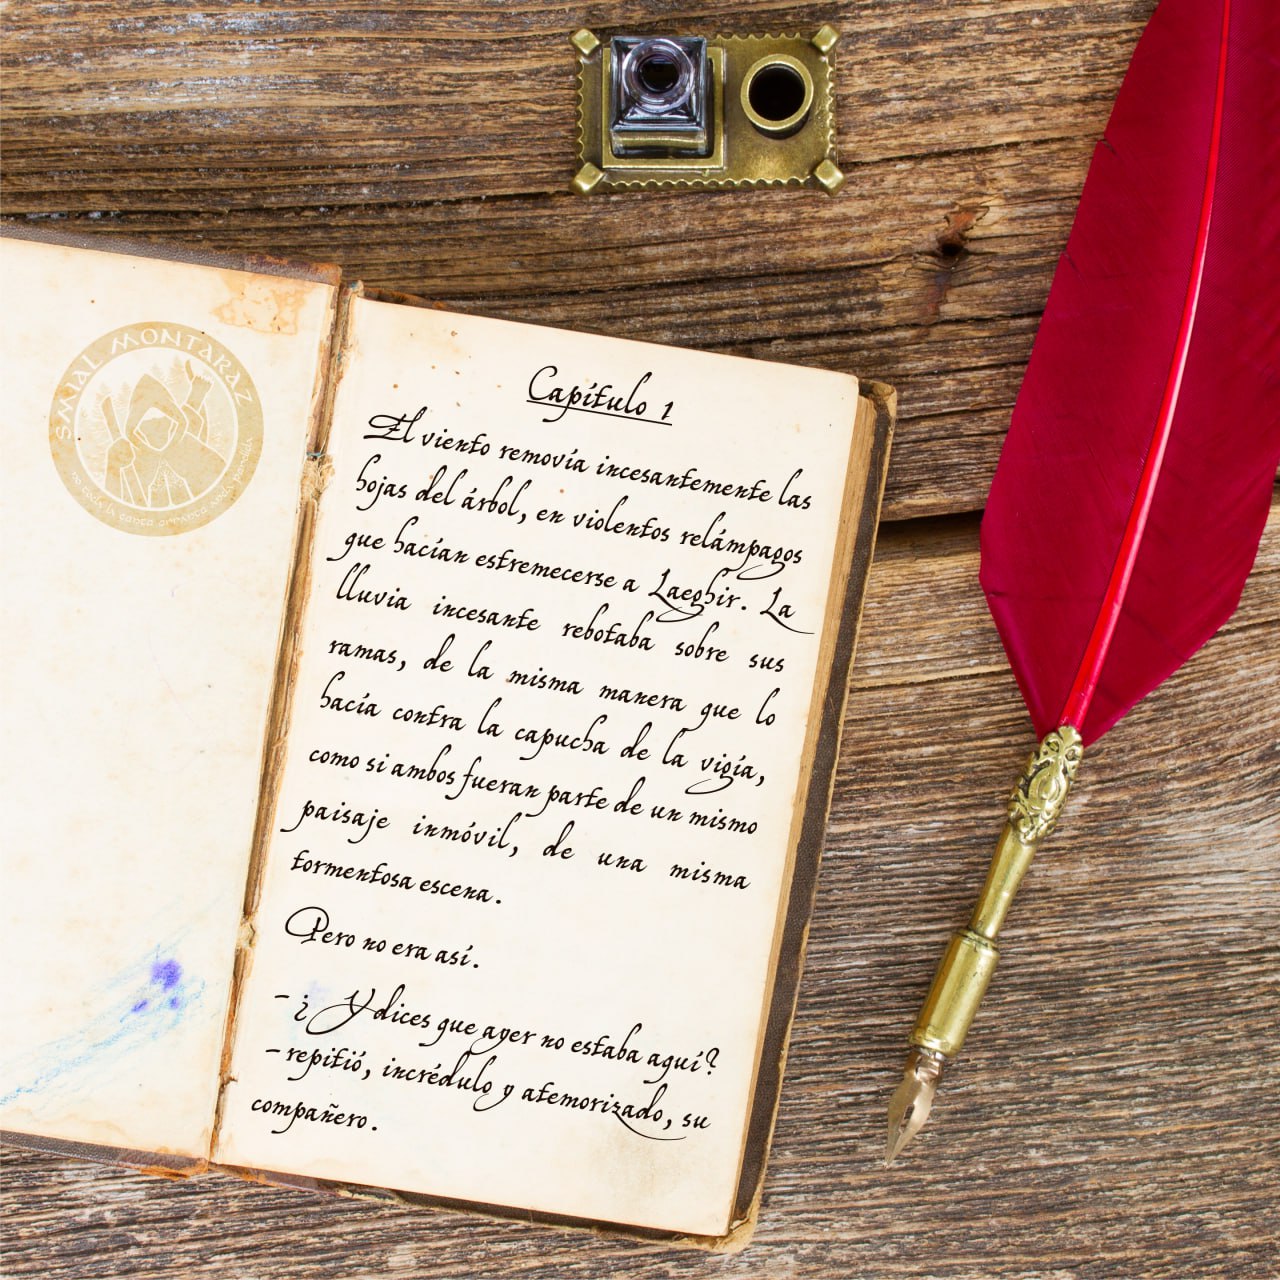 SMIAL MONTARAZ
no toda la gente errante anda perdida
Capítulo 1
El viento removía incesantemente las
hojas del árbol, en violentos relámpagos
que hacían estremecerse a Laeghir. La
lluvia incesante rebotaba sobre sus
ramas, de la misma manera que lo
hacía contra la capucha de la vigía,
como si ambos fueran parte de un mismo
paisaje inmóvil, de una misma
tormentosa escena.
Pero no era así.
- ¿Y dices que ayer no estaba aquí?
- repitió, incrédulo y atemorizado, su
compañero.